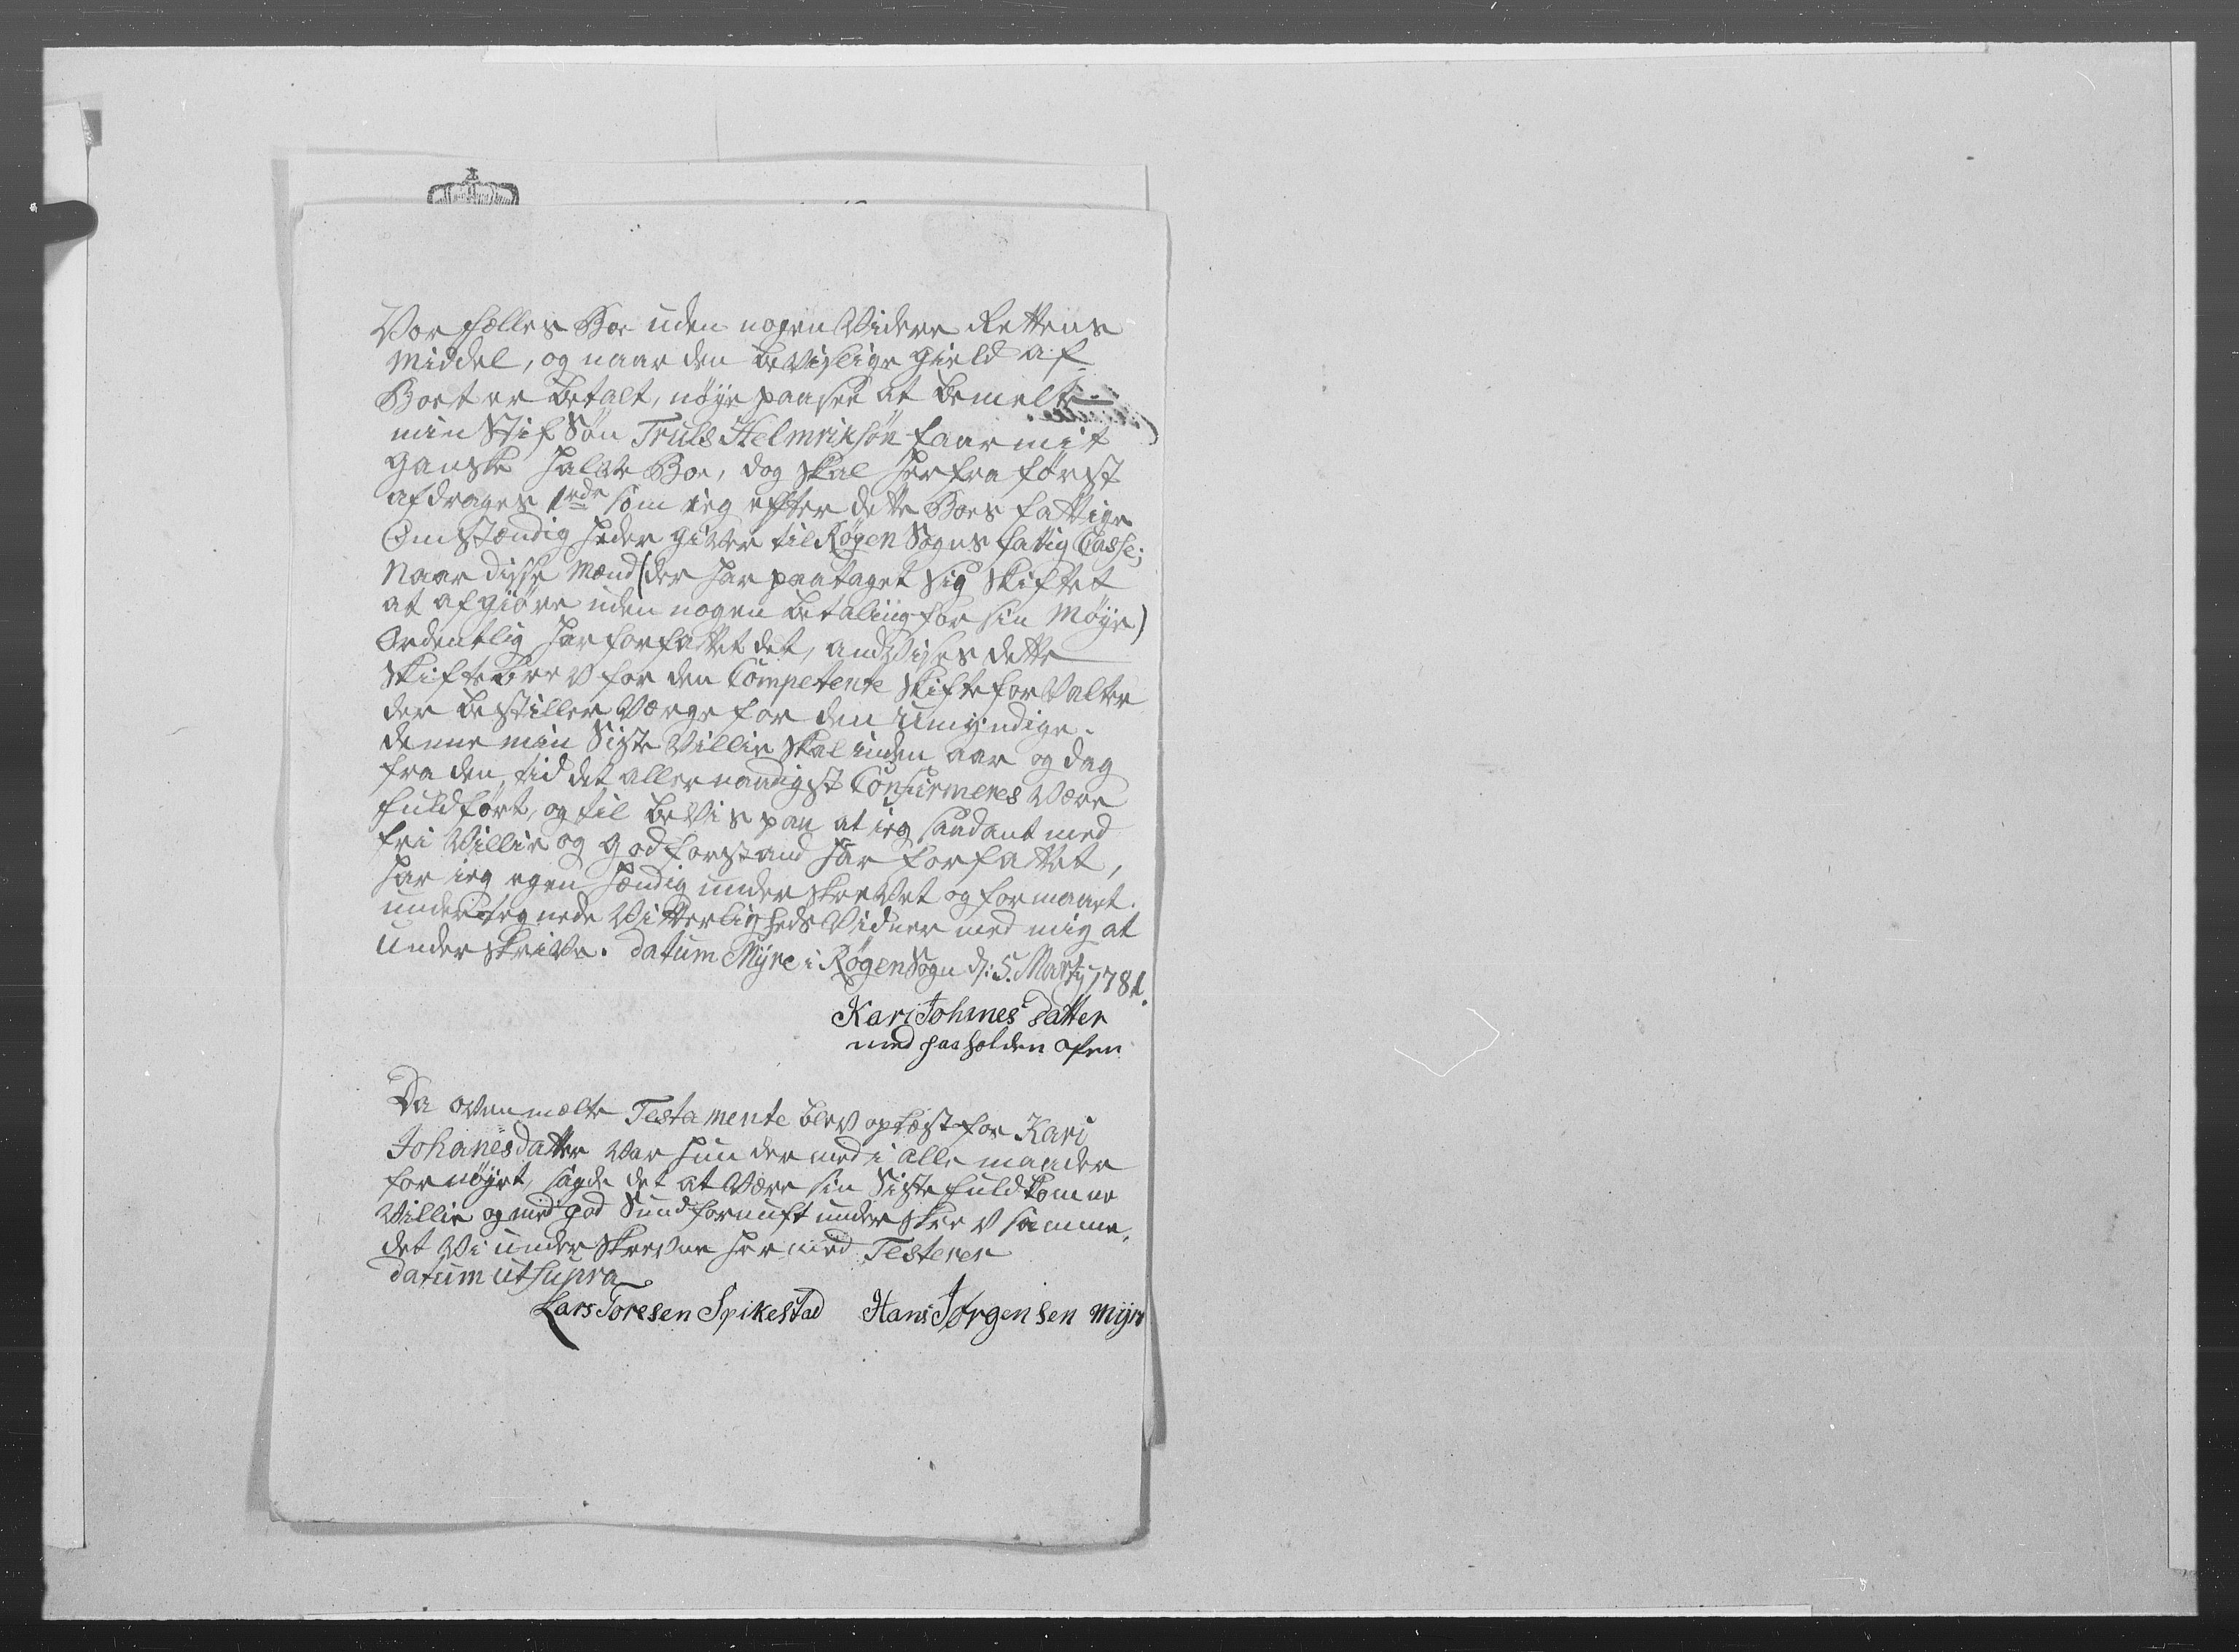 Vor fælles Boe uden nogen Videre Rettens
Middel, og naar den bevislige gield af
Boet er betalt, nøye paasee at bemelte
min Stif Søn Truls Helmriksøn faar mit
ganske halve Boe, dog skal herfra først
afdrages 1 rdr som ieg efter dette Boes fattige
Omstændigheder giver til Røgen Sogns fattig Casse;
Naar disse Mænd (der har paataget sig skiftet
at afgiøre uden nogen betaling for sin Møye)
Ordentlig har forfattet det, andvises dette
Skiftebrev for den Competente Skifteforvalter
der bestiller Værge for den Umyndige.
denne min Siste Villie skal inden aar og dag
fra den tid det allernaadigst Confirmeres være
fuldført, og til bevis paa at ieg saadant med
fri Villie og god forstand har forfattet,
har ieg egenhændig underskrevet og formaaet
undertegnede Vitterligheds Vidner med mig at
underskrive. datum Myre i Røgen Sogn d: 5. Marty 1781.
Kari Johnes datter
med paaholden Pen
Da ovenmelte Testamente blev oplæst for Kari
Johanesdatter var hun dermed i alle maader
fornøyet, sagde det at være sin Siste fuldkomne
Villie og med god Sund fornuft underskrev samme,
det Vi underskrevne hermed Testerer
datum ut supra
Lars Toresen Spikestad Hans Jørgensen Myre